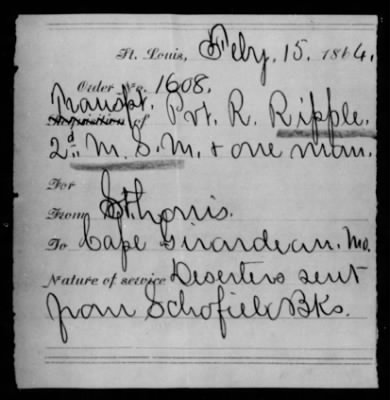 St. Louis, Feby. 15. 1864.
Order No. 1608.
Transpt. Pvt. R. Ripple.
Requisition of
2d. M. S. M. + one man.
For
From St. Louis.
To Cape Girardeau. Mo.
Nature of service Deserters sent
from Schofield Bks.